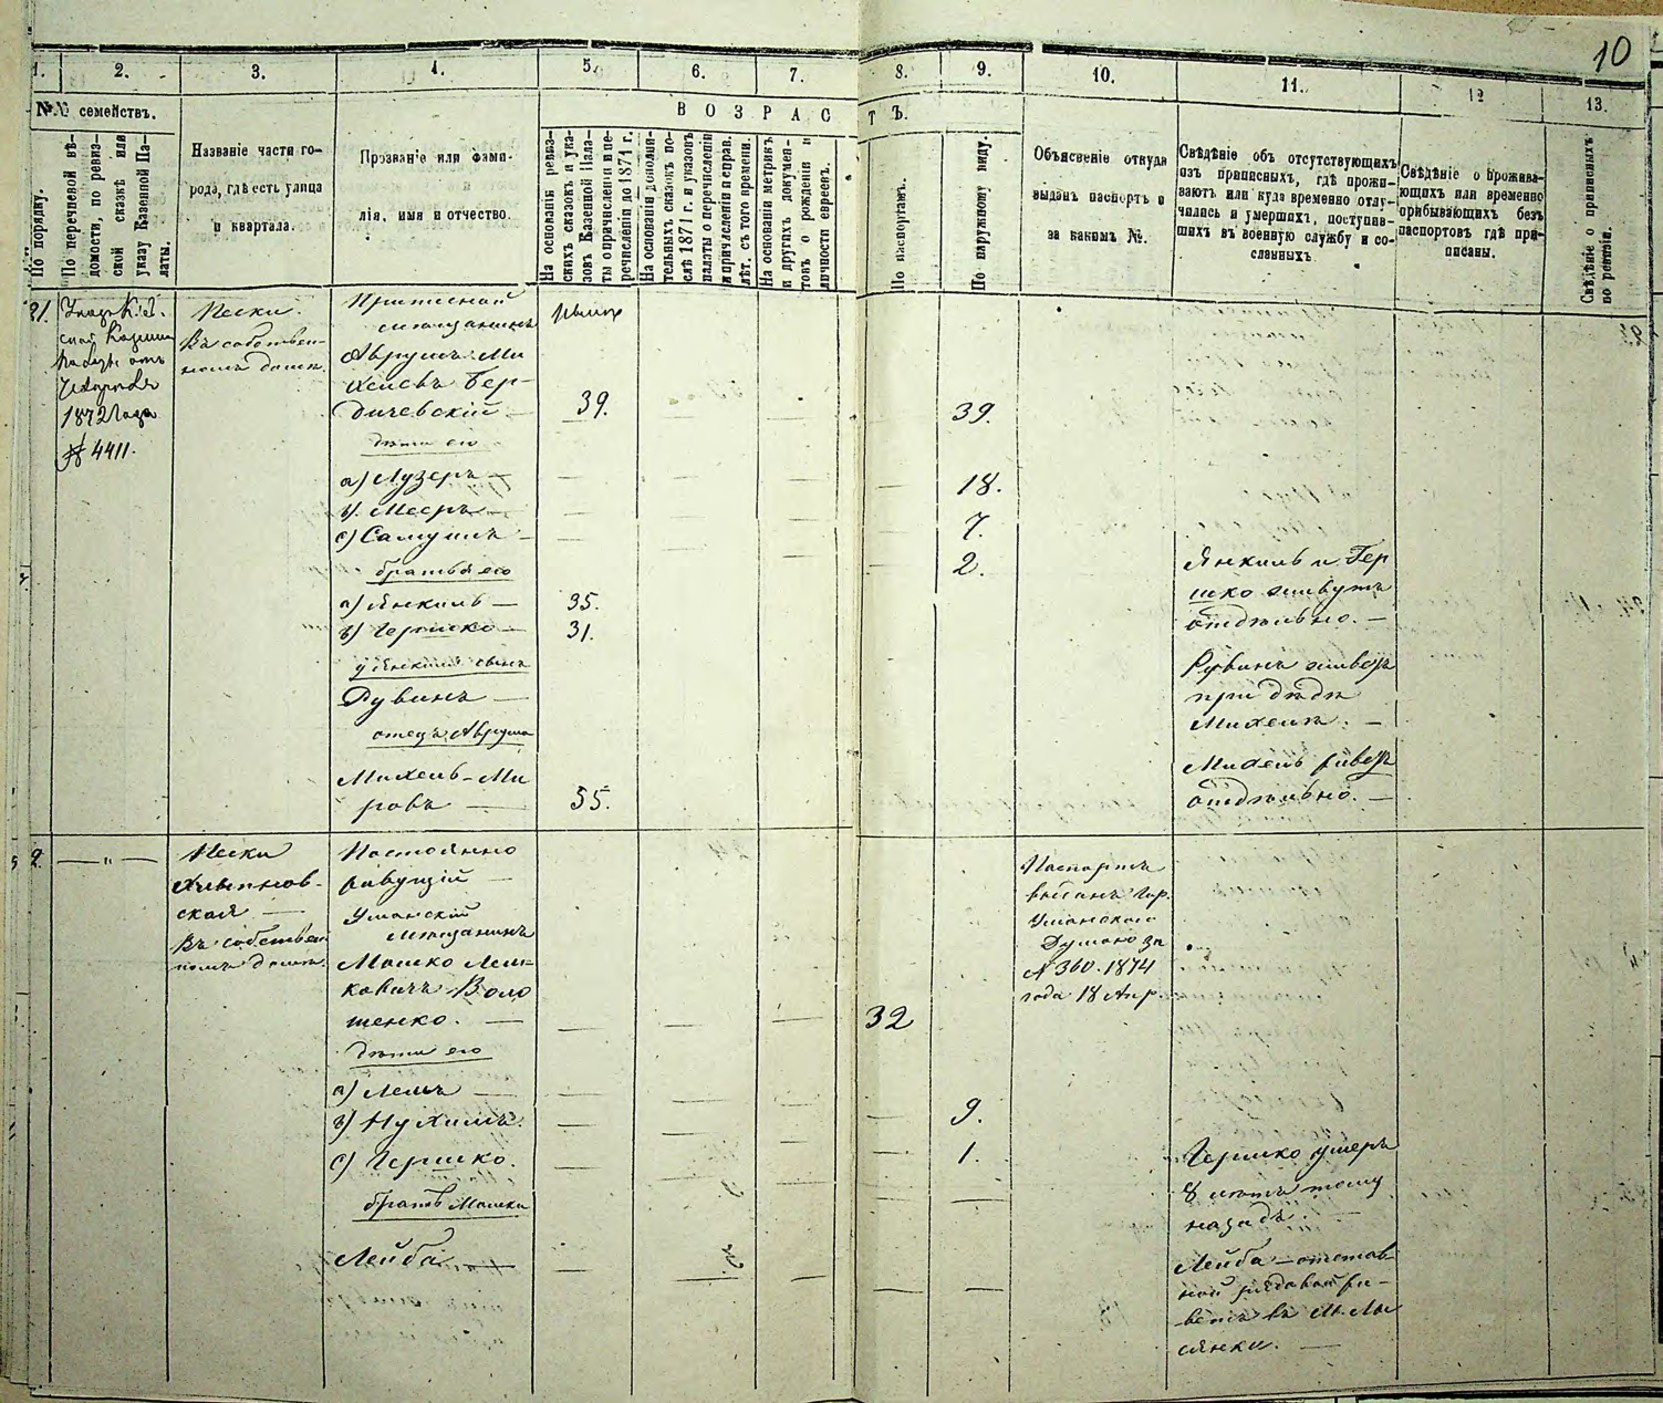 10
1.
2.
3.
4.
5.
6.
7.
8.
9.
10.
11.
12
13.
№№ семействъ.
ВОЗРАСТЪ.
По порядку.
По перечневой вѣ-
домости, по ревиз-
ской сказкѣ или
указу Казенной Па-
латы.
Названіе части го-
рода, гдѣ есть улица
и квартала.
Прозваніе или фами-
лія, имя и отчество.
На основаніи ревиз-
скихъ сказокъ и ука-
зовъ Казенной Пала-
ты о причисленіи и пе-
речисленіи до 1871 г.
На основаніи дополни-
тельныхъ сказокъ по-
слѣ 1871 г. и указовъ
палаты о перечисленіи
и причисленіи неправ.
лѣт. съ того времени.
На основаніи метрикъ
и другихъ докумен-
товъ о рожденіи и
личности евреевъ.
По паспортамъ.
По наружному виду.
Объясненіе откуда
выданъ паспортъ и
за какимъ №.
Свѣдѣніе объ отсутствующихъ
изъ приписныхъ, гдѣ прожи-
ваютъ или куда временно отлу-
чились и умершихъ, поступив-
шихъ въ военную службу и со-
сланныхъ
Свѣдѣніе о прожива-
ющихъ или временно
прибывающихъ безъ
паспортовъ гдѣ при-
писаны.
Свѣдѣніе о приписныхъ
по ревизіи.
Указъ Кіев-
ской Казенн
Палаты отъ
1872 Года
№ 4411.
Пески.
Въ собствен-
номъ домѣ.
Приписной
мѣщанинъ
Аврумъ Ми
хелевъ Бер-
дичевскій —
39.
39.
дѣти его
а) Лузеръ —
18.
в) Мееръ —
7.
с) Самуилъ —
2.
братья его
а) Янкель —
35.
в) Гершко —
31.
у Янкеля сынъ
Рувинъ —
отецъ Аврума
Михель-Ми
ровъ —
55.
Янкель и Гер
шко живутъ
отдѣльно. —
Рувинъ живетъ
при дѣдѣ
Михелѣ. —
Михель живетъ
отдѣльно. —
2.
— „ —
Пески
ская —
Въ собствен
номъ домѣ.
Постоянно
живущій —
Уманскій
мѣщанинъ
Мошко Лей-
ковичъ Воло
шенко. —
32
Паспортъ
выданъ Гор.
Уманскою
Думою за
№ 360. 1874
года 18 Апр.
дѣти его
а) —
9.
в) Нухимъ.
1.
с) Гершко.
Гершко умеръ
8 лѣтъ тому
назадъ. —
братъ Мошки
Лейба —
Лейба — отстав-
ной рядовой жи-
ветъ въ М. Лы
сянки. —